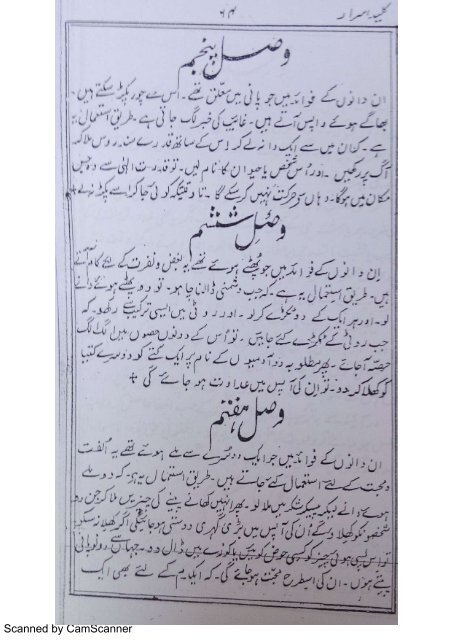 ۶۴
کلید اسرار
وصل پنجم
ان دانوں کے فوائد میں جو پانی میں معلق تھے۔ اس سے چور پکڑ سکتے ہیں۔
بھاگے ہوئے واپس آتے ہیں۔ غائبین کی خبر لگ جاتی ہے۔ طریق استعمال یہ
ہے۔ کہ ان میں سے ایک دانہ لے کر اس کے ساتھ قدرے سندروس ملا کر
آگ پر رکھیں۔ اور اس شخص یا حیوان کا نام لیں۔ تو قدرت الٰہی سے وہ جس
مکان میں ہوگا۔ وہاں سے حرکت نہیں کر سکے گا۔ تا وقتیکہ کوئی جا کر اسے پکڑ نہ لے
وصل ششم
ان دانوں کے فوائد میں جو پھٹے ہوئے تھے یہ بغض و نفرت کے لئے کام آتے
ہیں۔ طریق استعمال یہ ہے۔ کہ جب دشمنی ڈالنی چاہو۔ تو دو پھٹے ہوئے دانے
لو۔ اور ہر ایک کے دو ٹکڑے کر لو۔ اور روٹی میں ایسی ترکیب سے رکھو۔ کہ
جب روٹی کے ٹکڑے کئے جائیں۔ تو اس کے دونوں حصوں میں الگ الگ
حصہ آجائے۔ پھر مطلوبہ دو آدمیوں کے نام پر ایک کتے کو دوسرے کتیا
کو کھلا کر دو۔ تو ان کی آپس میں عداوت ہو جائے گی
وصل ہفتم
ان دانوں کے فوائد میں جو ایک دوسرے سے ملے ہوئے تھے یہ الفت
و محبت کے لئے استعمال کئے جاتے ہیں۔ طریق استعمال یہ ہے۔ کہ دو ملے
ہوئے دانے لیکر پیسکر شکر میں ملا لو۔ پھر انہیں کھانے پینے کی چیز میں ملا کر جن دو
شخصوں کو کھلا دو گے ان کی آپس میں بڑی گہری دوستی ہو جائیگی اگر کھلا نہ سکو
تو اس پسی ہوئی چیز کو کسی حوض کنویں یا کوزے میں ڈال دو۔ جہاں سے دونوں پانی
پیتے ہوں۔ ان کی اسطرح محبت ہو جائے گی۔ کہ ایکدم کے لئے بھی ایک
Scanned by CamScanner